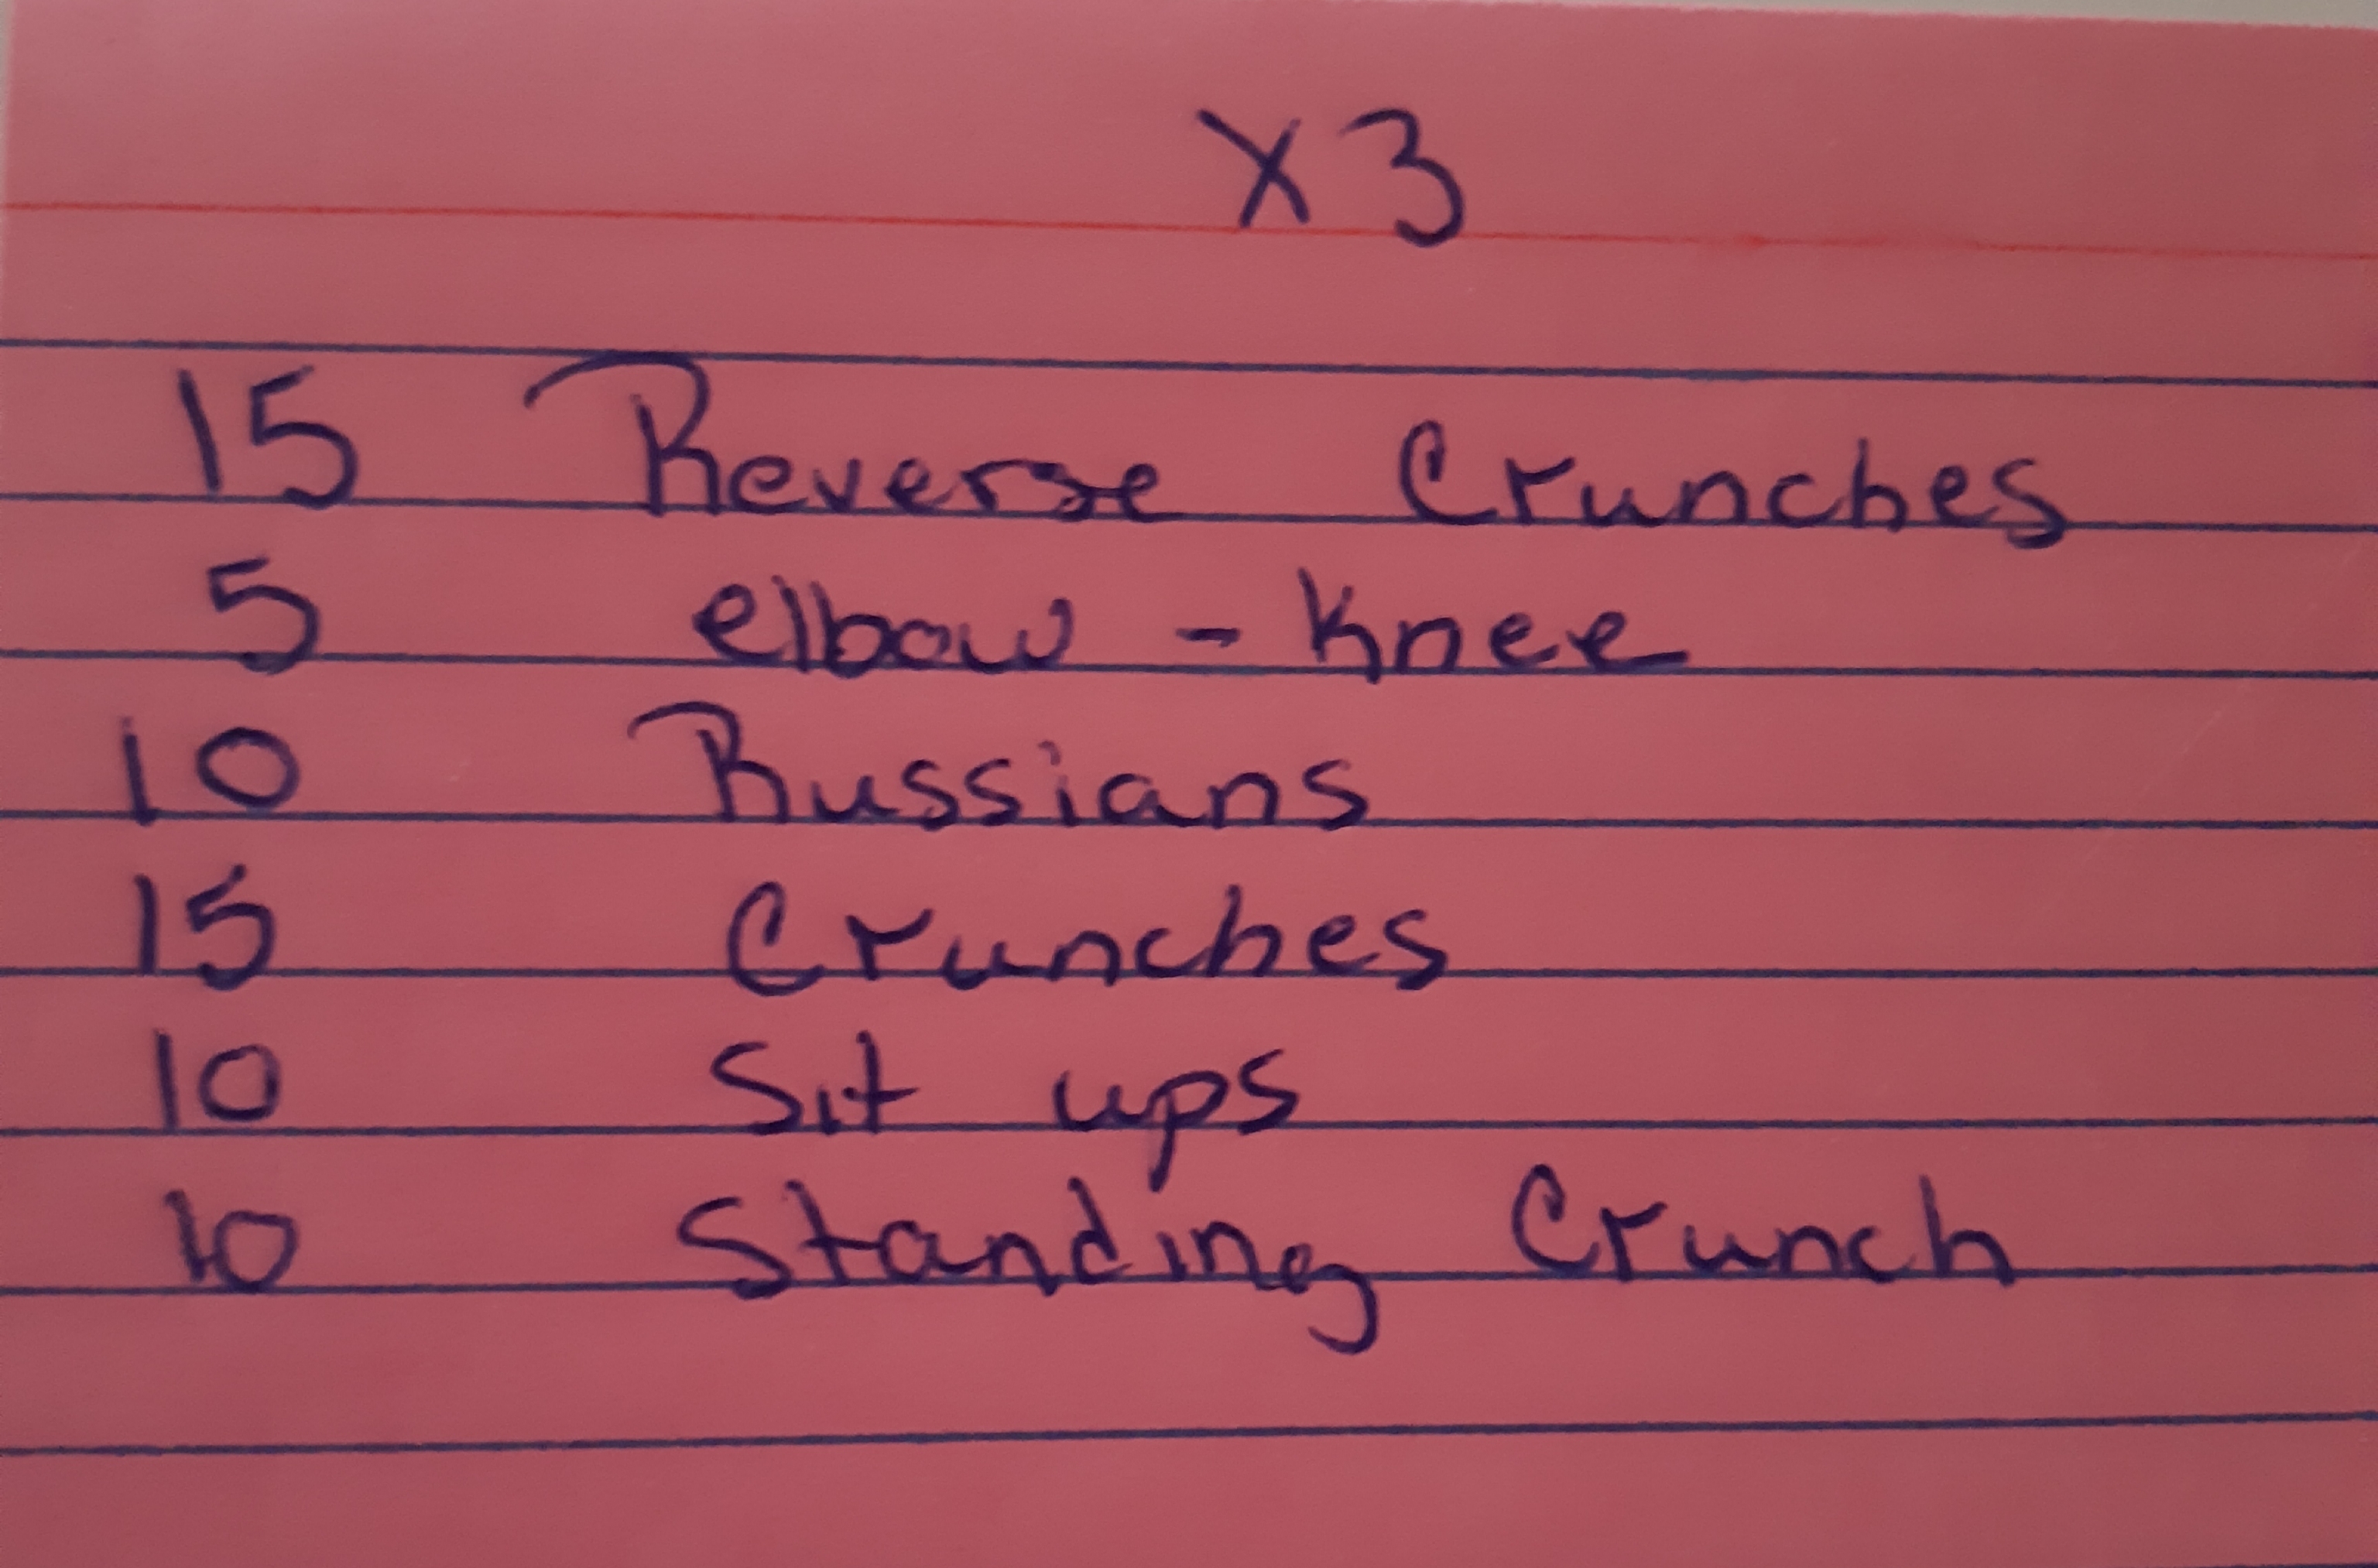 X3
15 Reverse Crunches
5 elbow - Knee
10 Russians
15 Crunches
10 Sit ups
10 Standing Crunch